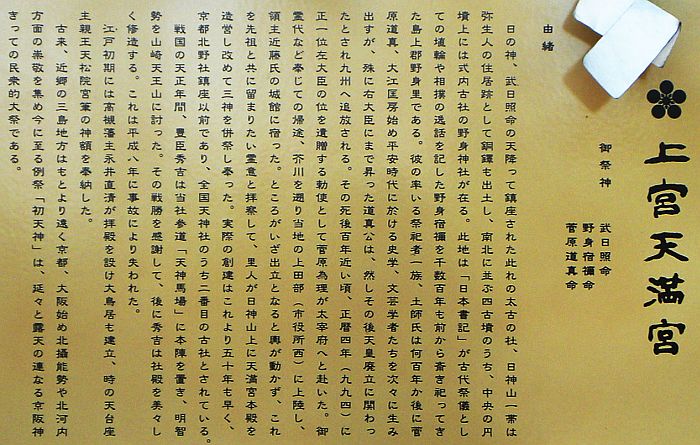 上宮天満宮
御祭神
武日照命
野身宿禰命
菅原道真命
由緒
日の神、武日照命の天降って鎮座された此れの太古の社、日神山一帯は
弥生人の住居跡として銅鐸も出土し、南北に並ぶ四古墳のうち、中央の円
墳上には式内古社の野身神社が在る。此地は「日本書記」が古代祭儀とし
ての埴輪や相撲の逸話を記した野身宿禰を千数百年も前から斎き祀ってき
た島上郡野身里である。彼の率いる祭祀者一族、土師氏は何百年か後に菅
原道真、大江匡房始め平安時代に於ける史学、文芸学者たちを次々に生み
出すが、殊に右大臣にまで昇った道真公は、然しその後天皇廃立に関わっ
たとされ九州へ追放される。その死後百年近い頃、正暦四年（九九四）に
正一位左大臣の位を遺贈する勅使として菅原為理が太宰府へと赴いた。御
霊代など奉じての帰途、芥川を遡り当地の上田部（市役所西）に上陸し、
領主近藤氏の城館に宿った。ところがいざ出立となると輿が動かず、これ
を先祖と共に留まりたい霊意と拝察して、里人が日神山上に天満宮本殿を
造営し改めて三神を併祭し奉った。実際の創建はこれより五十年も早く、
京都北野社鎮座以前であり、全国天神社のうち二番目の古社とされている。
戦国の天正年間、豊臣秀吉は当社参道「天神馬場」に本陣を置き、明智
勢を山崎天王山に討った。その戦勝を感謝して、後に秀吉は社殿を美々し
く修造する。これは平成八年に事故により失われた。
江戸初期には高槻藩主永井直清が拝殿を設け大鳥居も建立、時の天台座
主親王天松院宮筆の神額を奉納した。
古来、近郷の三島地方はもとより遠く京都、大阪始め北摂能勢や北河内
方面の崇敬を集め今に至る例祭「初天神」は、延々と露天の連なる京阪神
きっての民衆的大祭である。